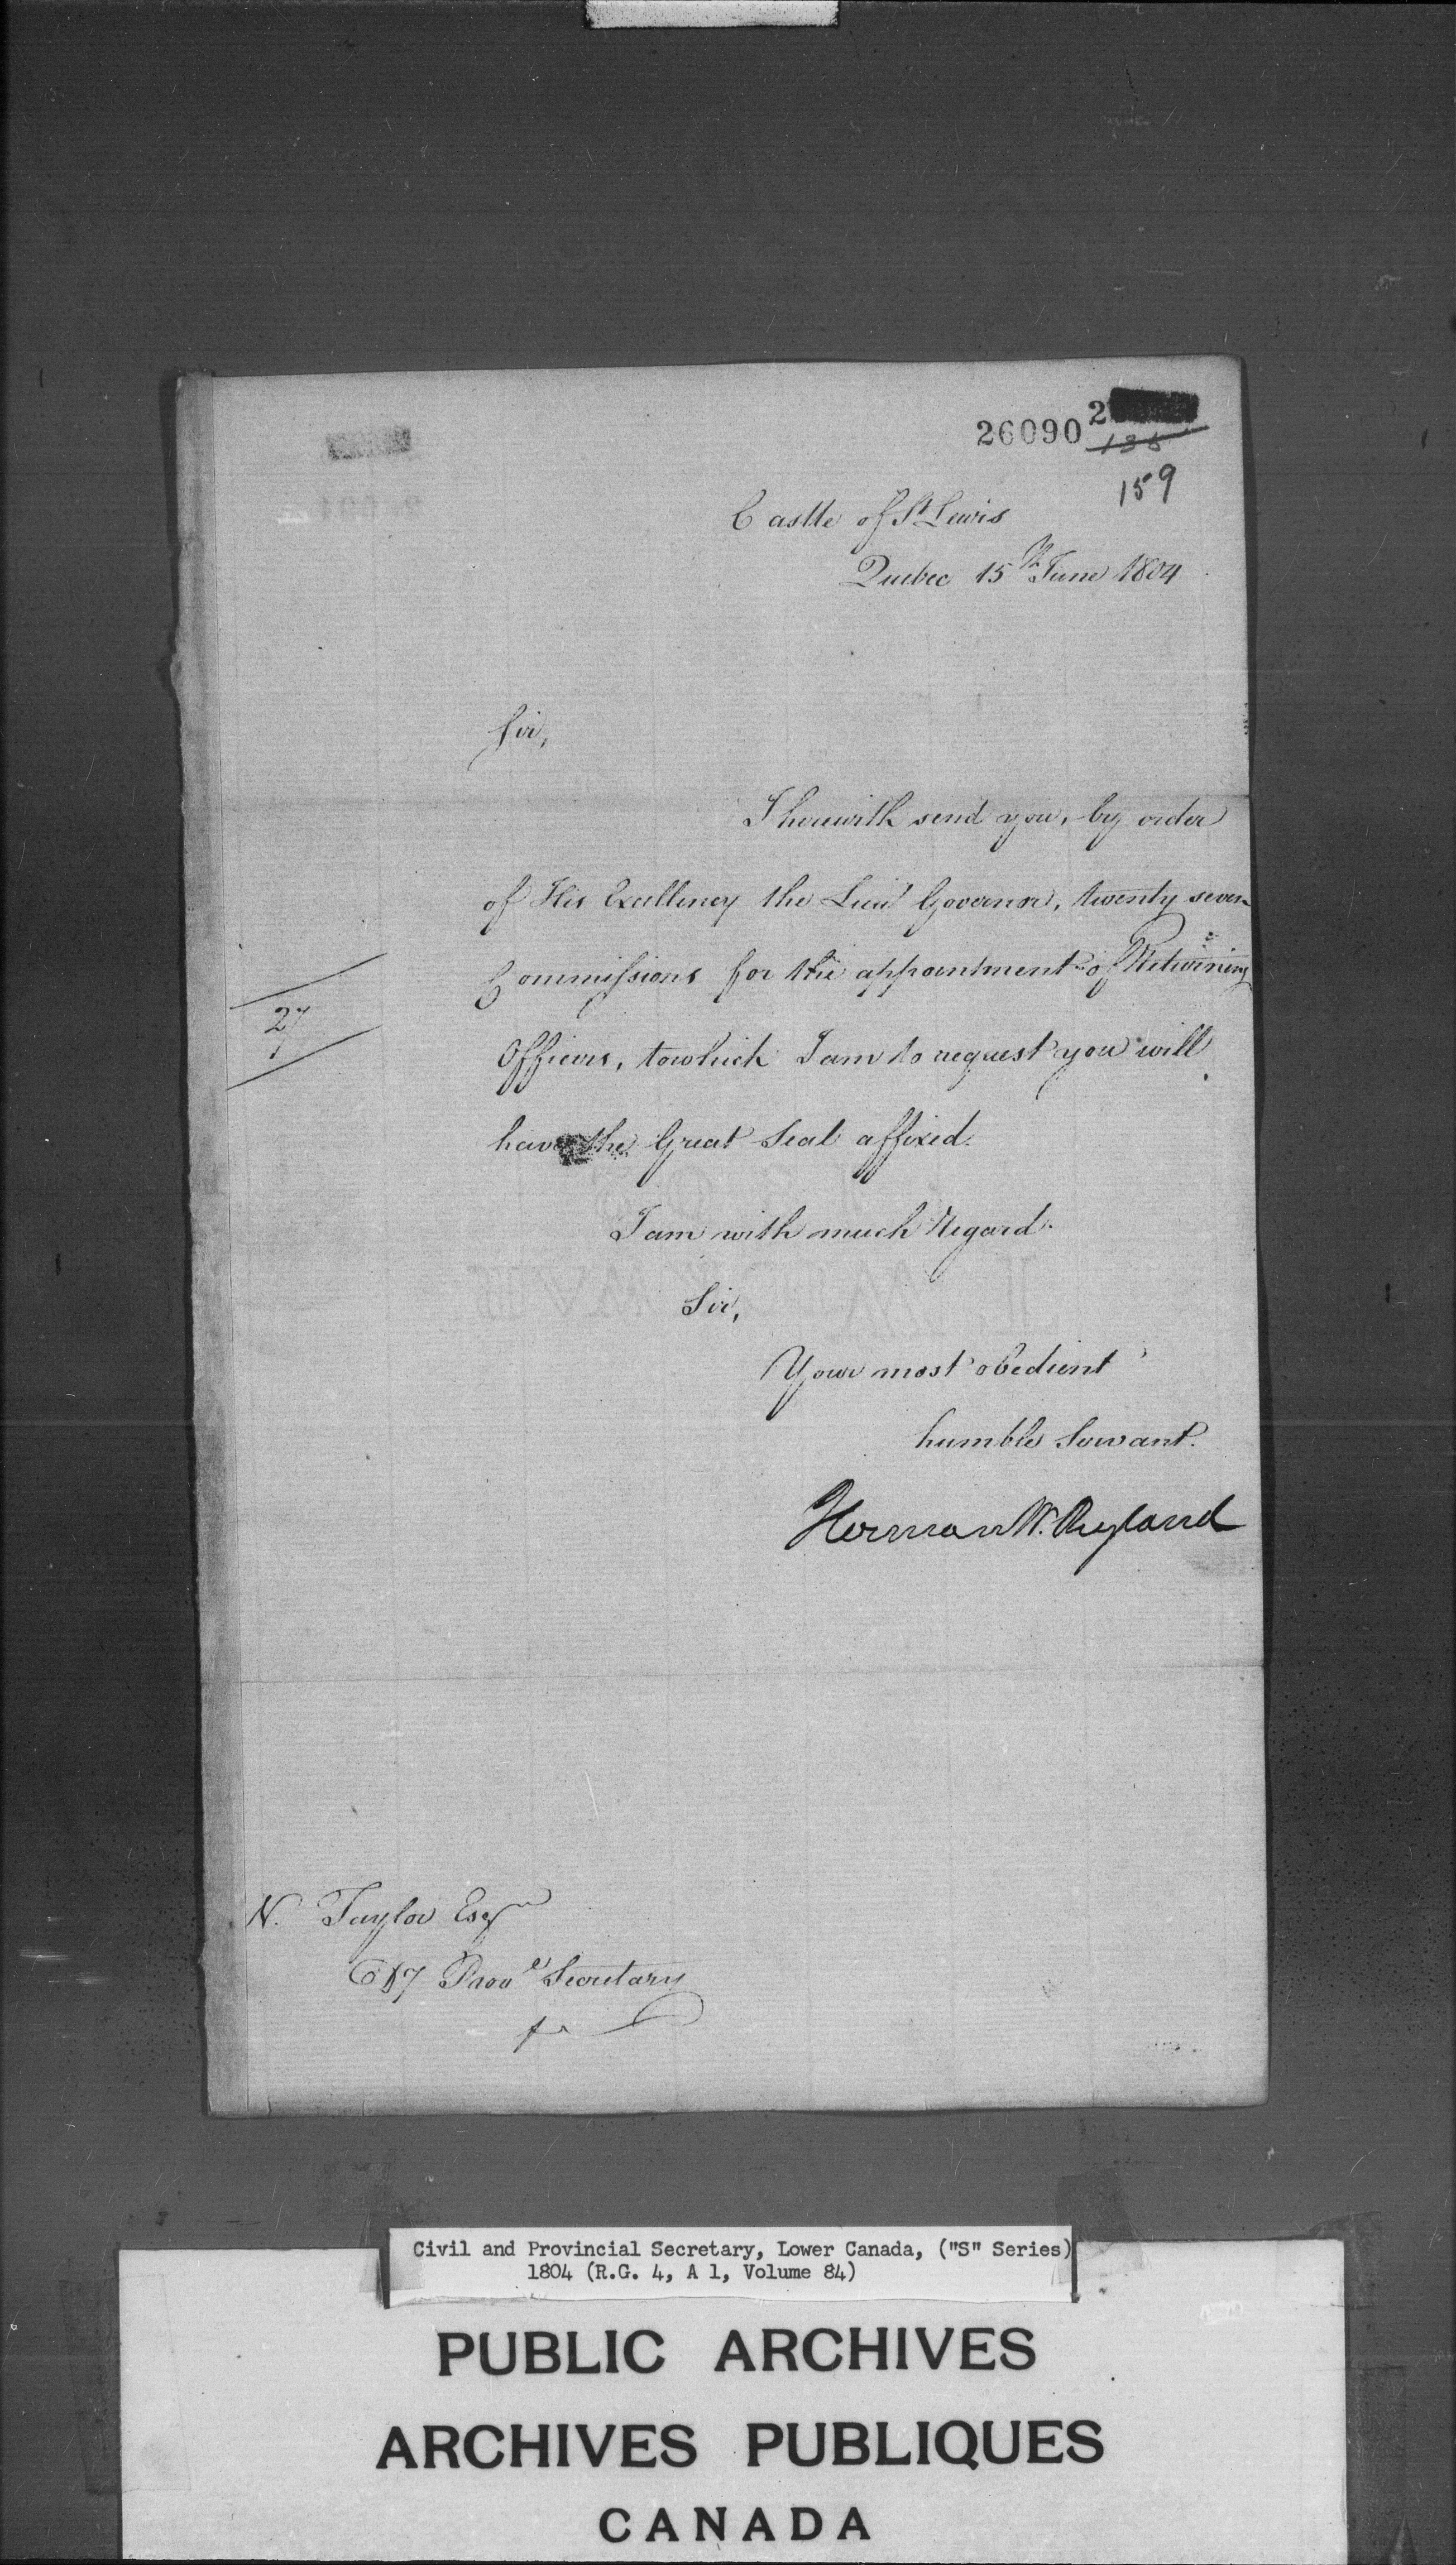 26090 2
135
159
Castle of St Lewis
Quebec 15th June 1804
Sir,
I herewith send you, by order
of His Excellency the Lieut Governor, twenty seven
Commissions for the appointment of Returning
27
Officers, to which I am to request you will
have the Great Seal affixed.
I am with much Regard
Sir,
Your most obedient
humble Servant.
Herman W. Ryland
N. Taylor Esqr
Dy Provl Secretary
Civil and Provincial Secretary, Lower Canada, ("S" Series)
1804 (R.G. 4, A 1, Volume 84)
PUBLIC ARCHIVES
ARCHIVES PUBLIQUES
CANADA